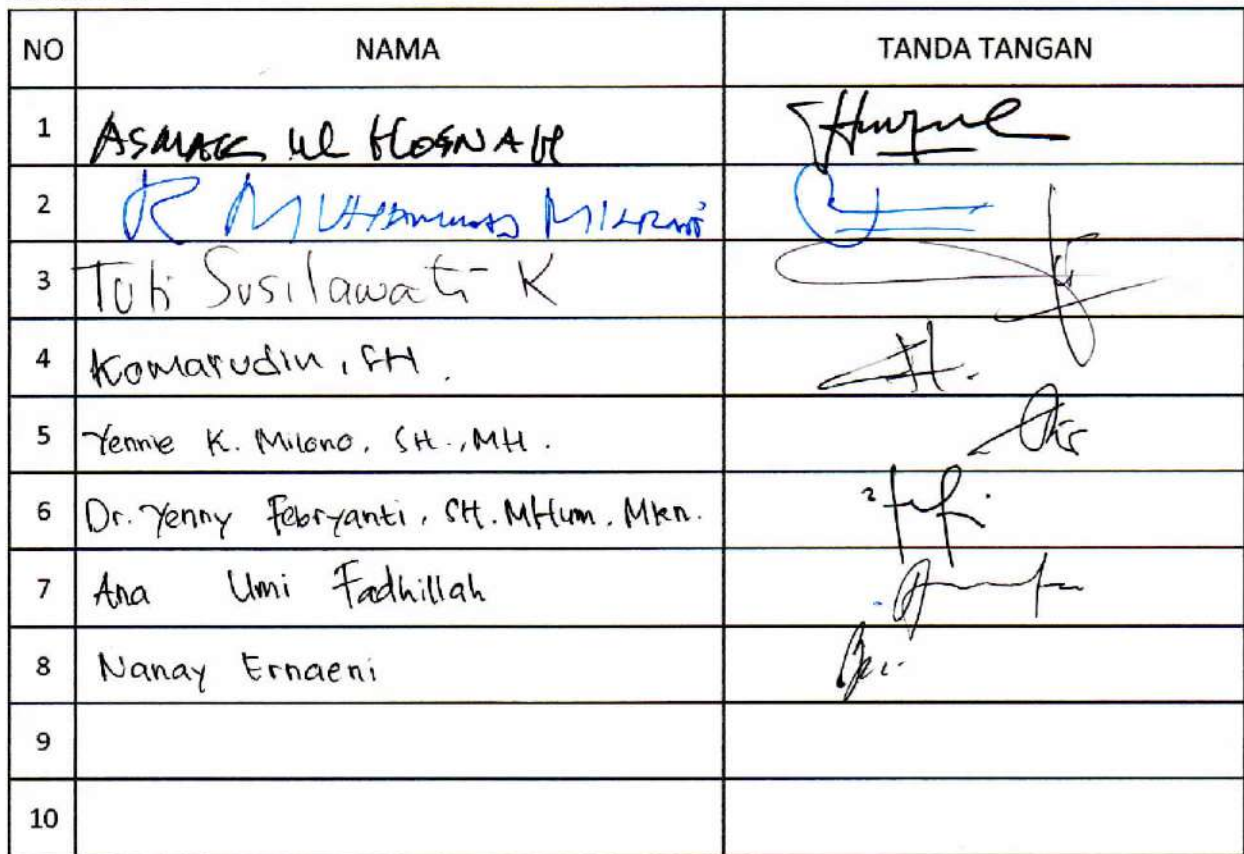 NO NAMA TANDA TANGAN
1 ASMAK UL HOSNAH
2 R MUHAMMAD MIHRADI
3 Tuti Susilawati K
4 Komarudin, SH.
5 Yennie K. Milono, SH., MH.
6 Dr. Yenny Febryanti, SH. MHum. Mkn.
7 Ana Umi Fadhillah
8 Nanay Ernaeni
9
10